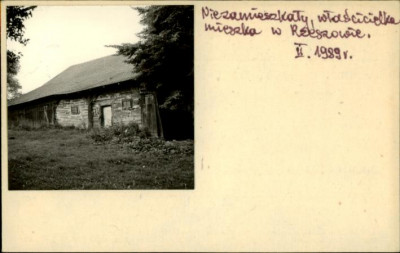 Niezamieszkały, właścicielka
mieszka w Rzeszowie.
II. 1989r.